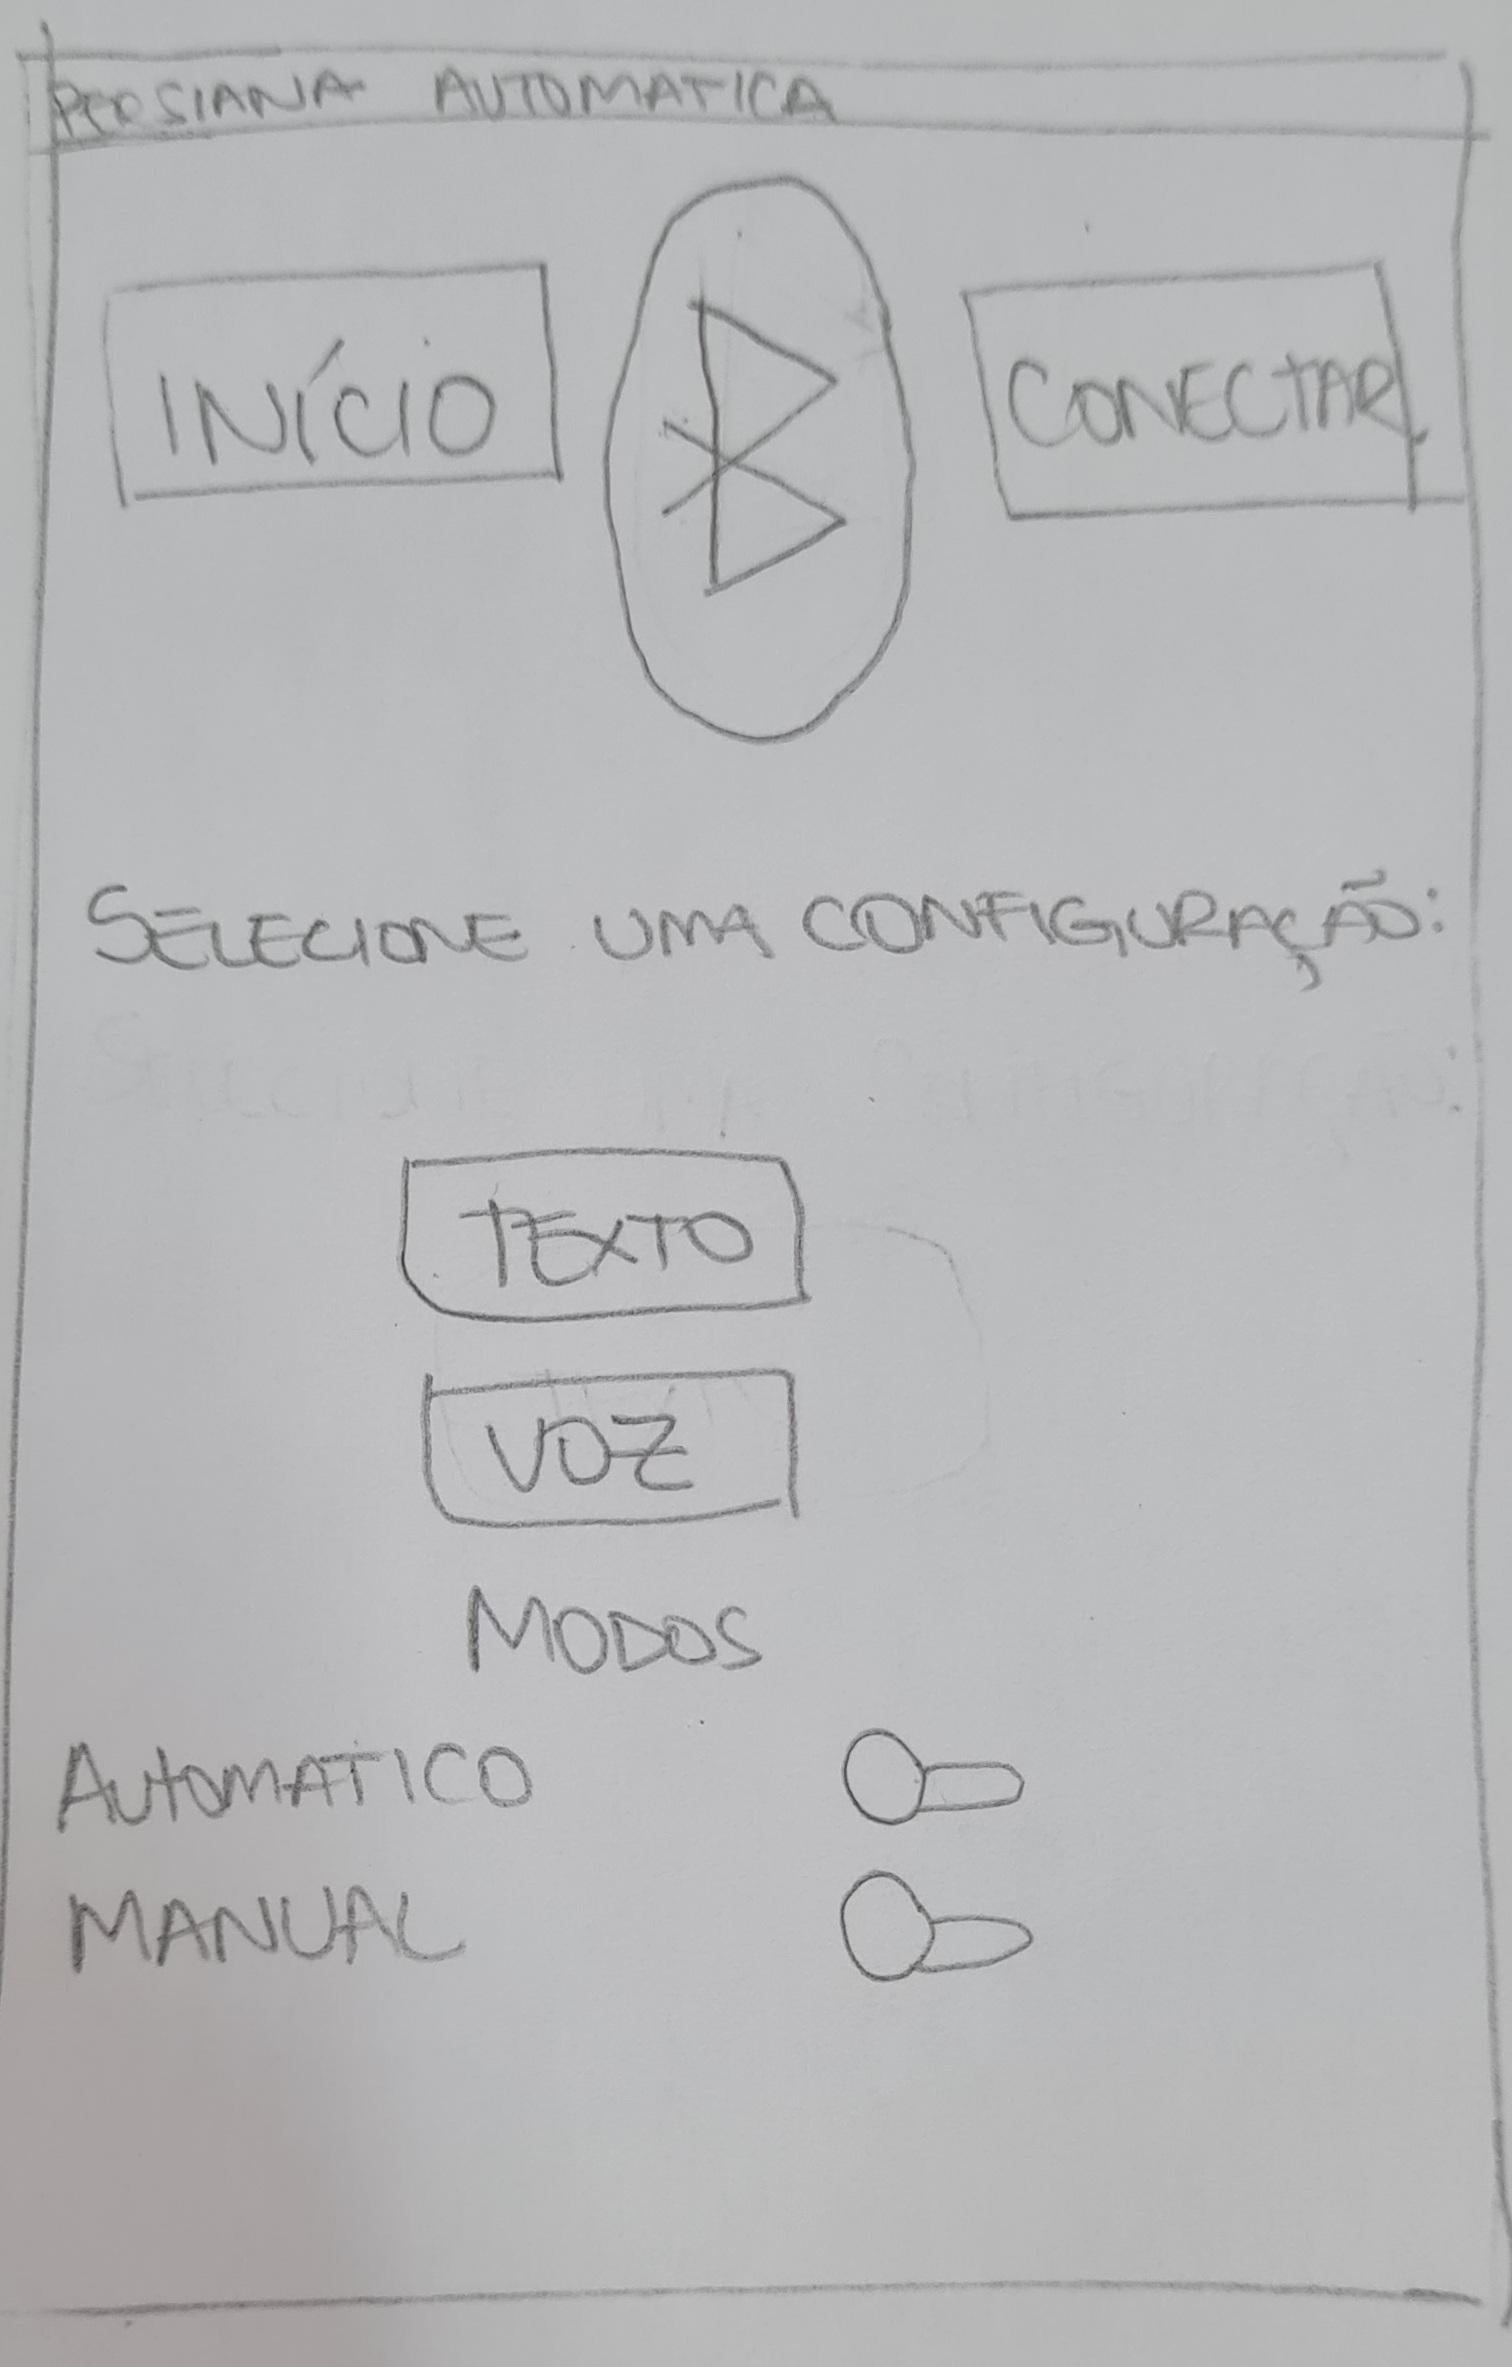 PERSIANA AUTOMATICA
INÍCIO
CONECTAR
SELECIONE UMA CONFIGURAÇÃO:
TEXTO
VOZ
MODOS
AUTOMATICO
MANUAL